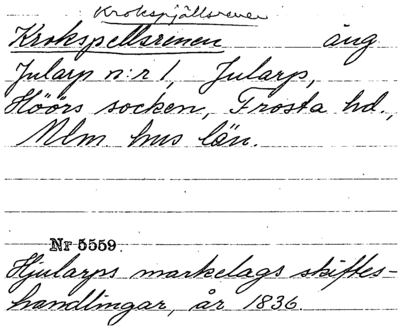 Krokspjällsrenen
Krokspellsrenen äng
Jularp n:r 1, Jularp,
Höörs socken, Frosta hd.,
Mlm. hus län.
Nr 5559
Hjularps markelags skiftes-
handlingar, år 1836.